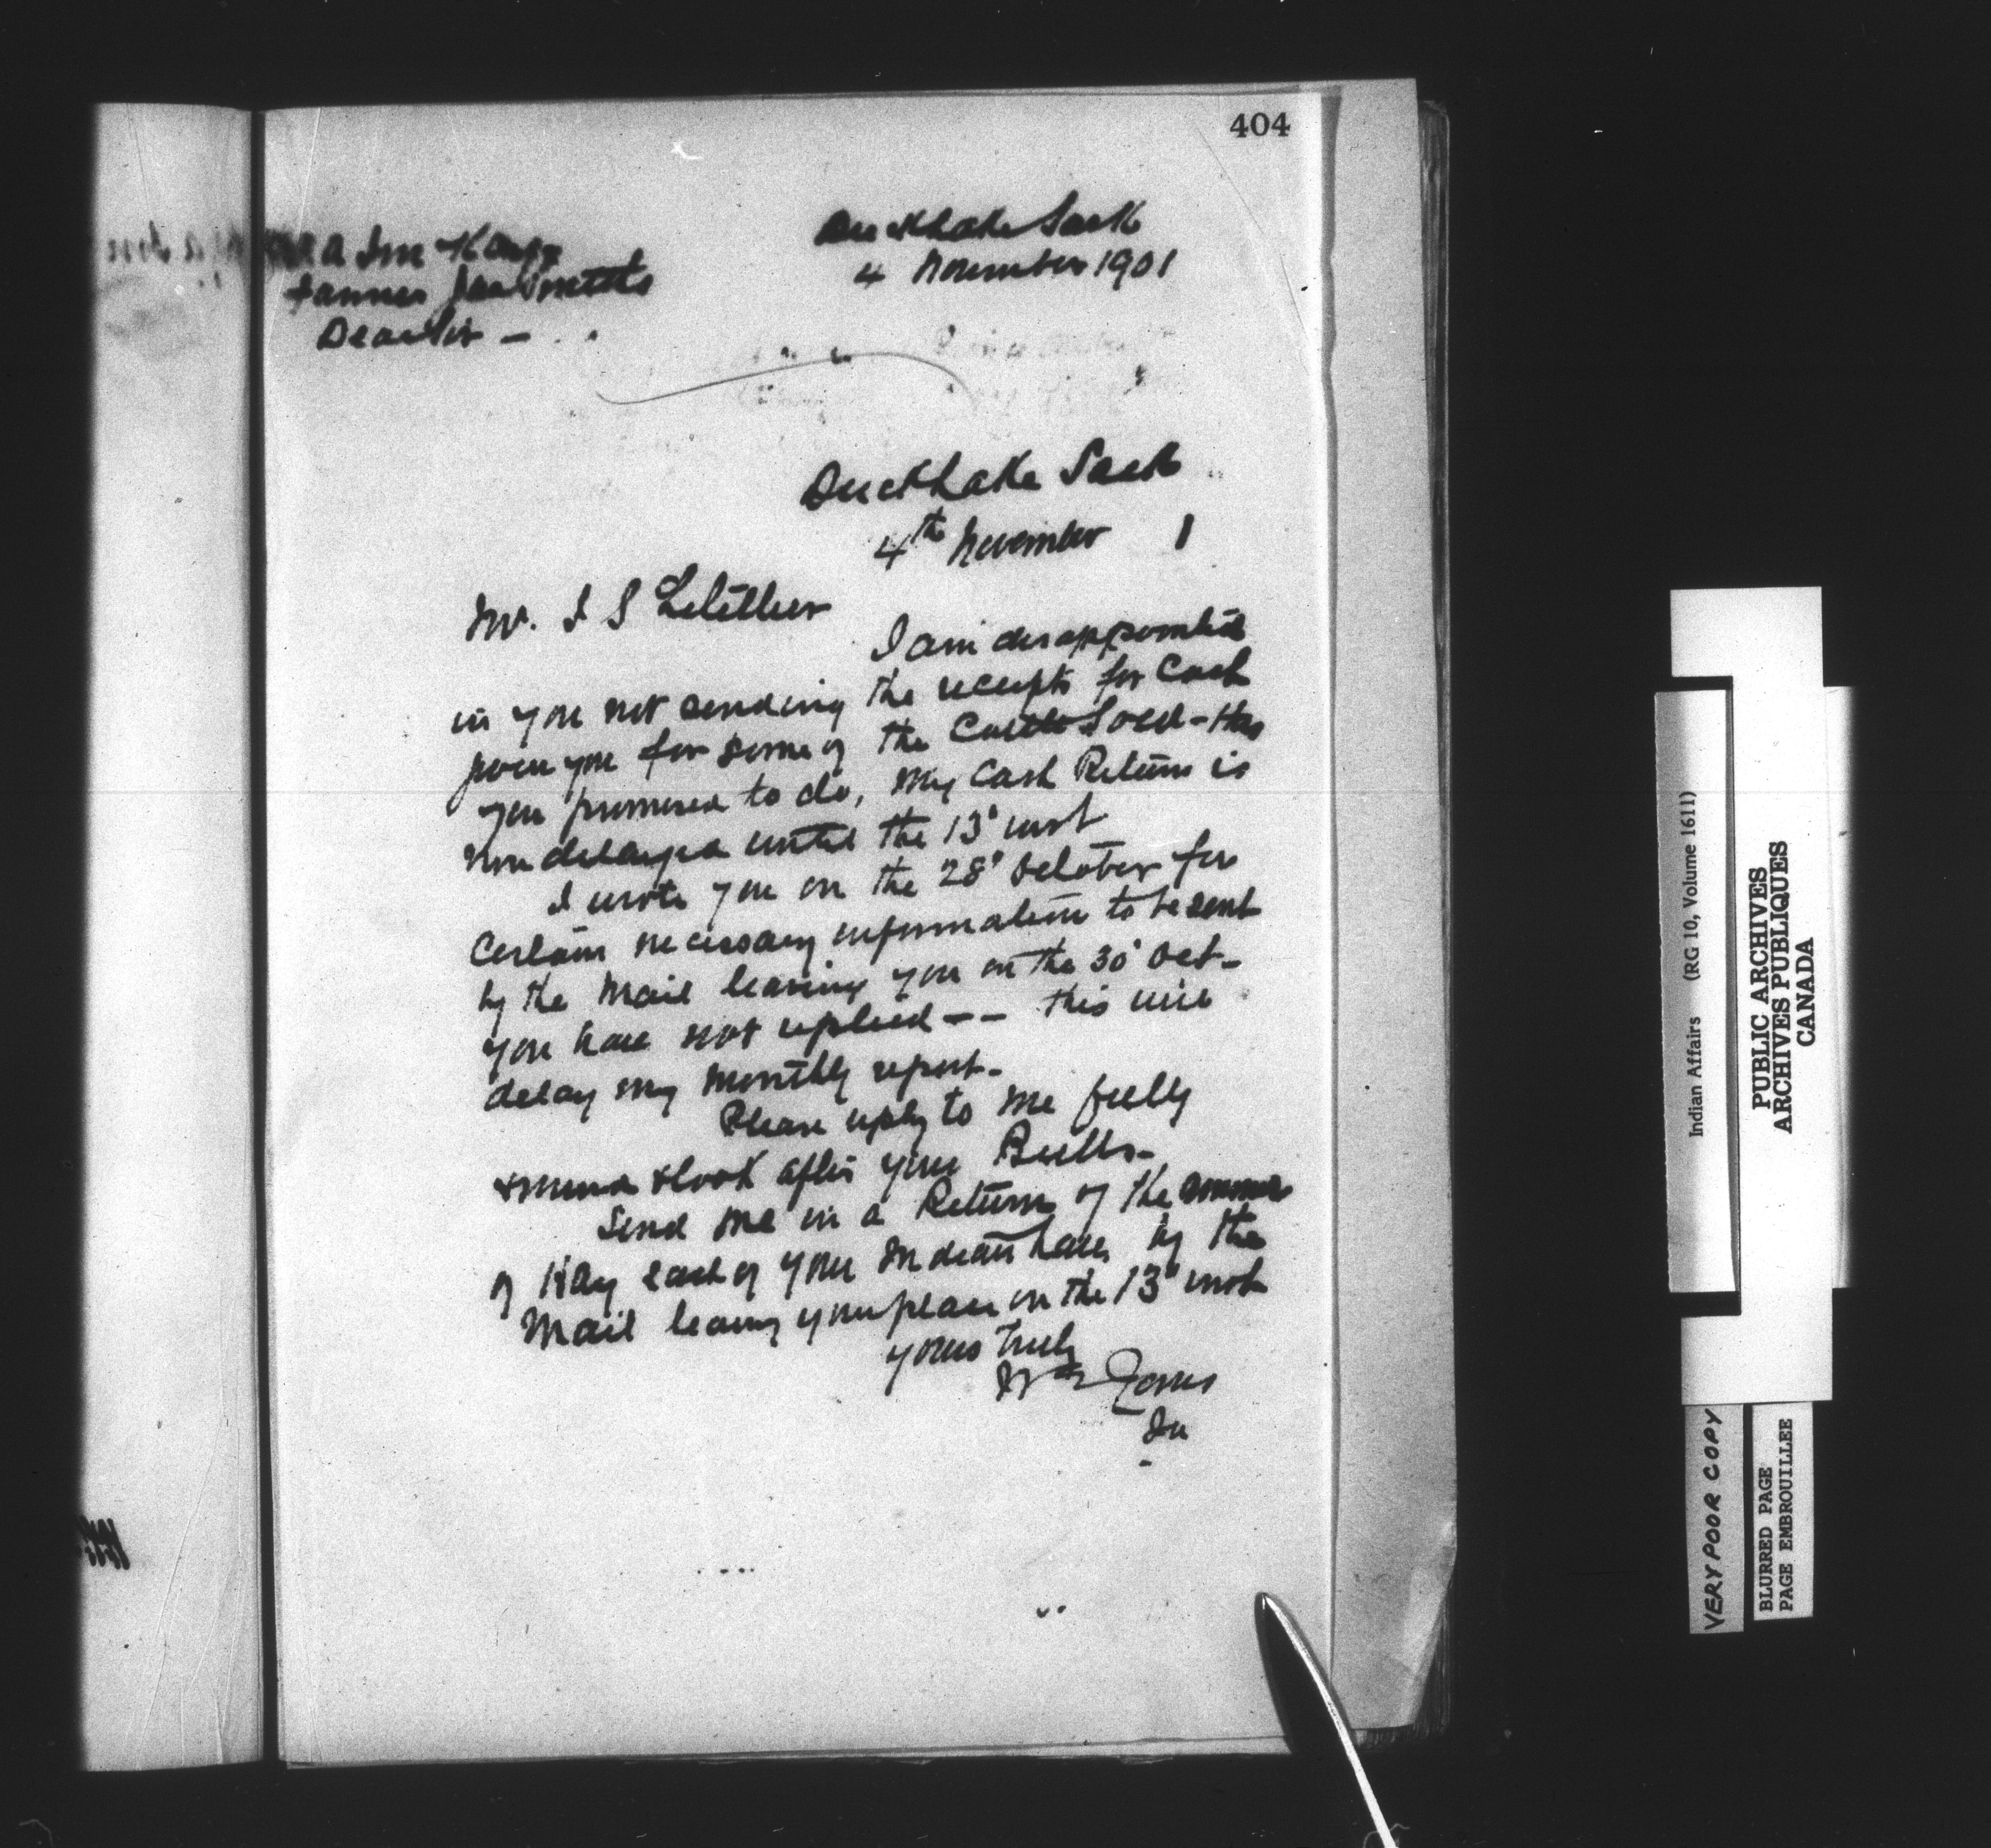 404
Duck Lake Sask
4 November 1901
A
Farmer
Dear Sir —
Duck Lake Sask
4th November 1
Mr. J S Letellier
I am disappointed
in you not sending the receipts for Cash
given you for some of the Cattle Sold - this
you promised to do, My Cash Return is
now delayed until the 13' inst
I wrote you on the 28' October for
Certain necessary information to be sent
by the Mail leaving you on the 30' Oct -
you have not replied - - this will
delay my Monthly report -
Please reply to me fully
& mind & look after your Bulls -
Send me in a Return of the
of Hay each of your Indians have, by the
Mail leaving your place on the 13' inst
yours truly
Wm Jones
Indian Affairs (RG 10, Volume 1611)
PUBLIC ARCHIVES
ARCHIVES PUBLIQUES
CANADA
VERY POOR COPY
BLURRED PAGE
PAGE EMBROUILLEE